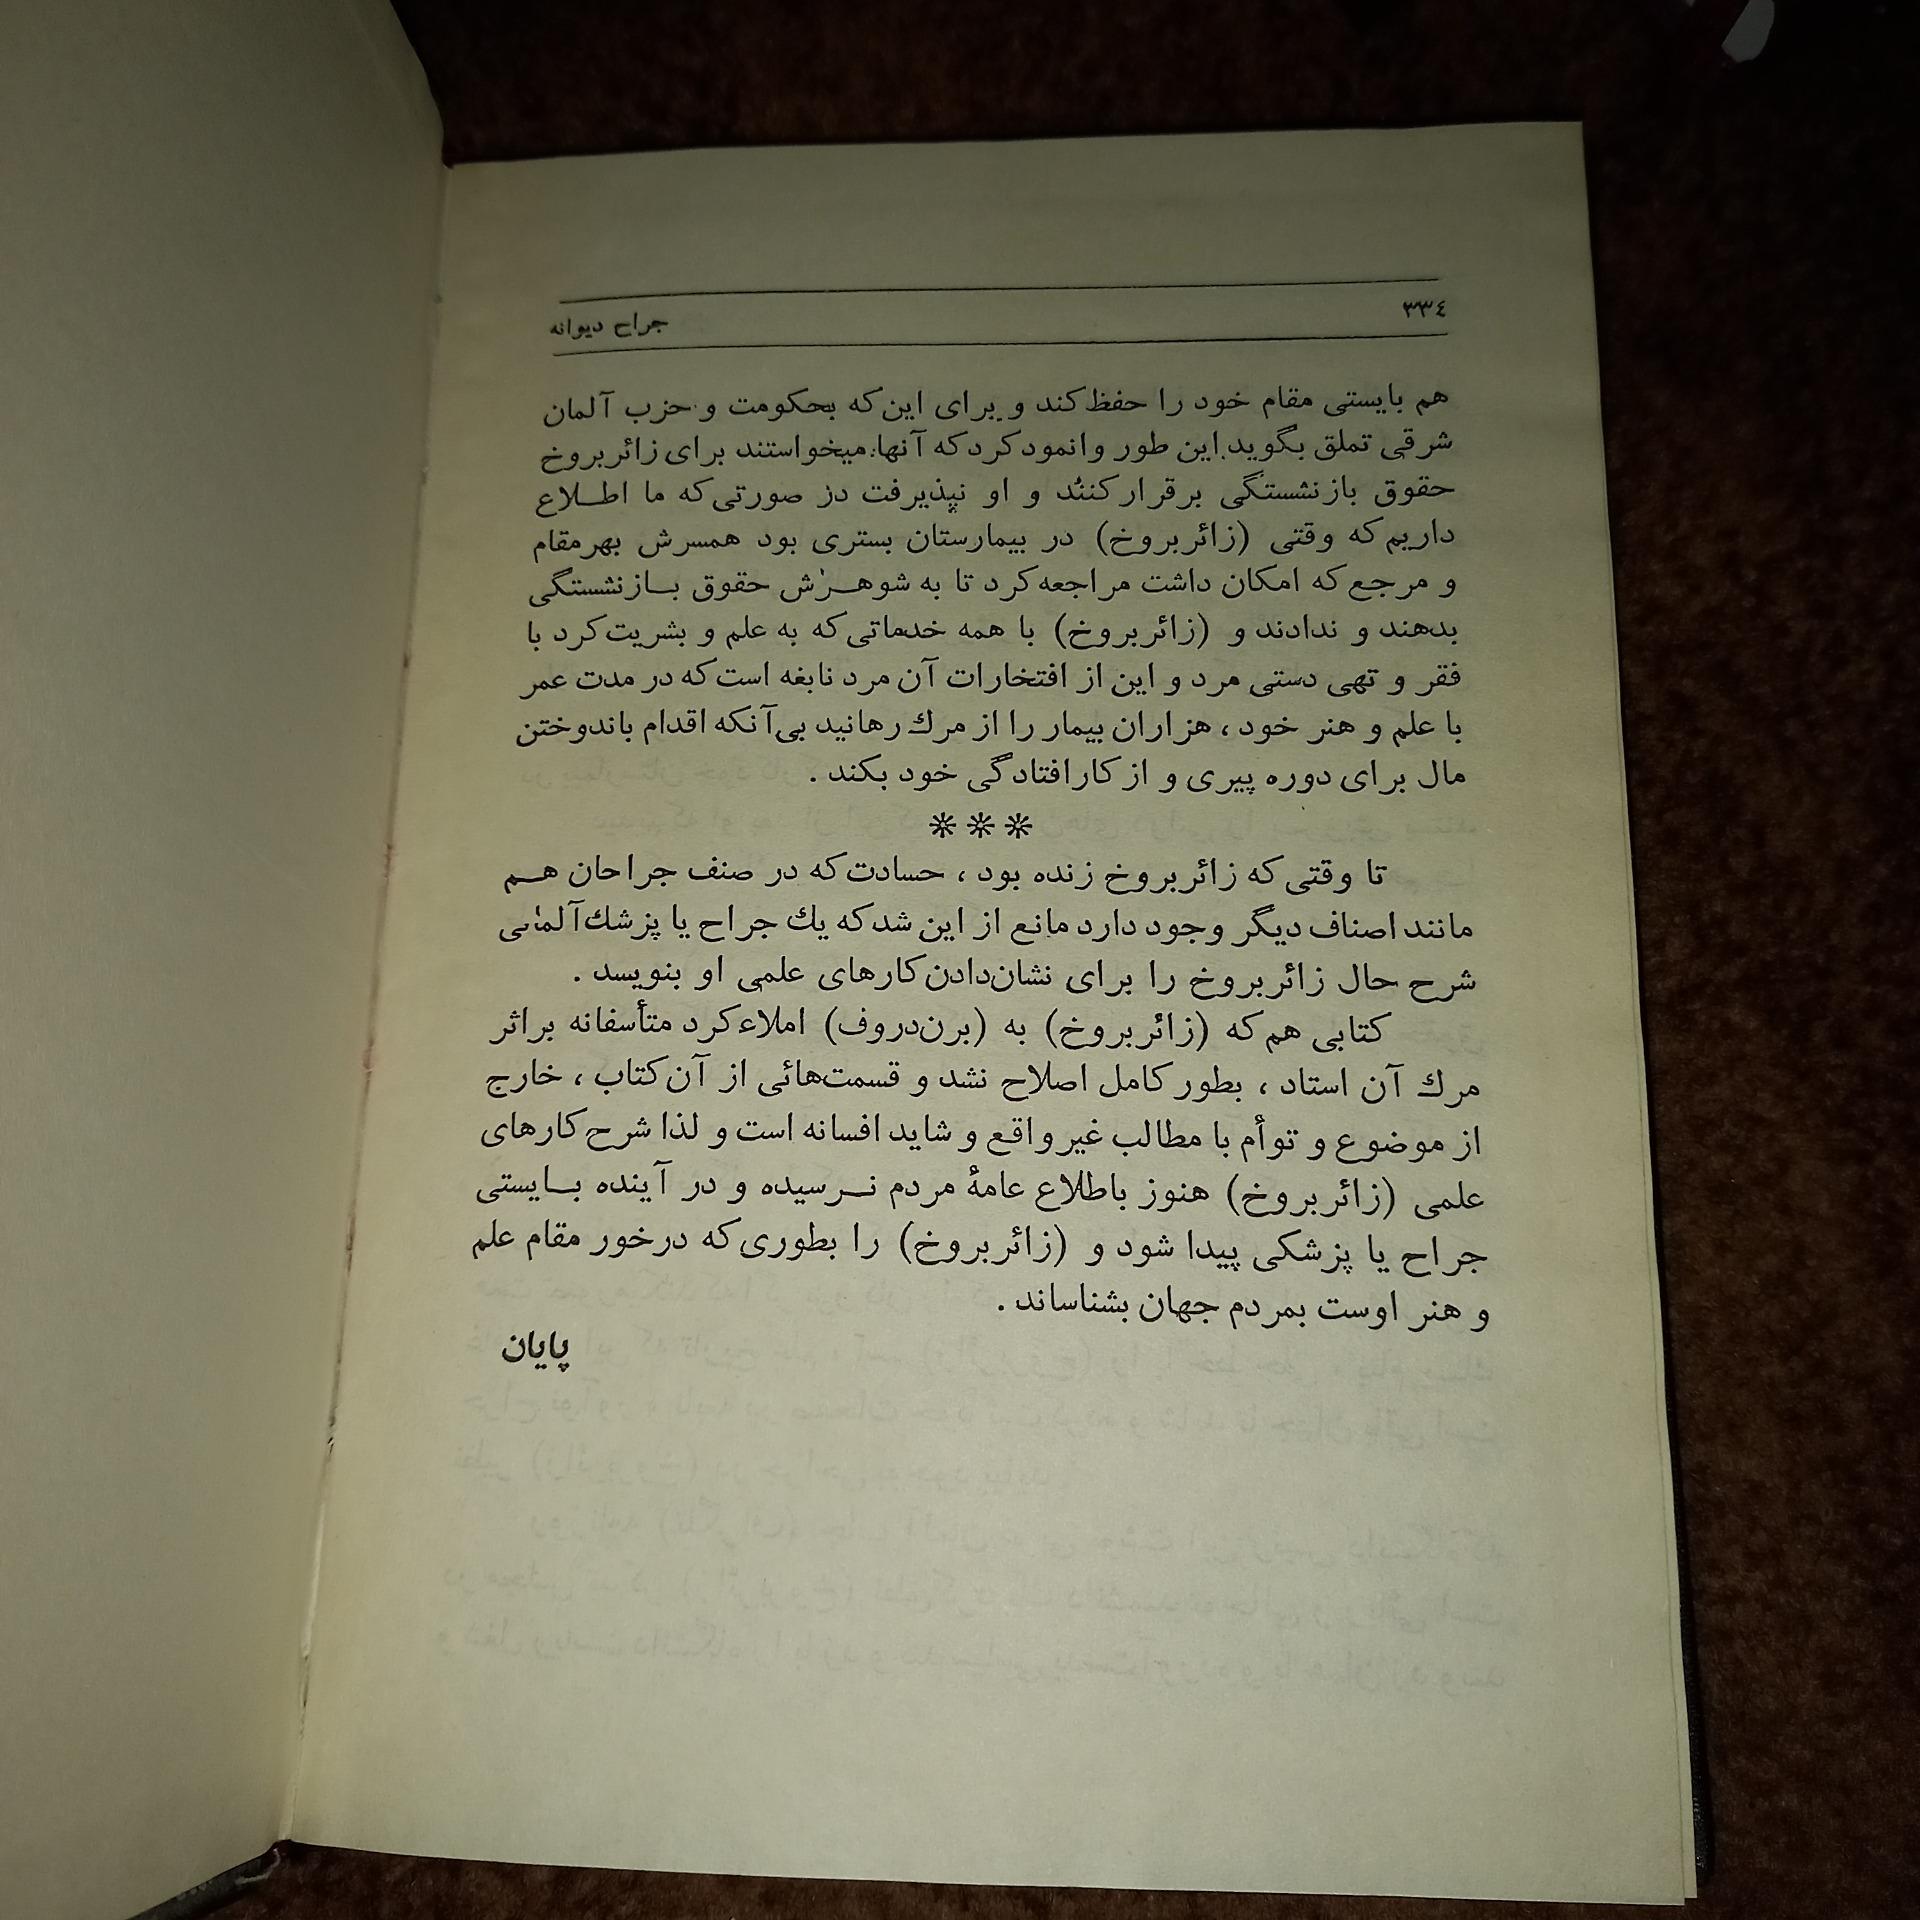 ۳۳٤
جراح دیوانه
هم بایستی مقام خود را حفظ کند و برای این که بحکومت و حزب آلمان
شرقی تملق بگوید این طور وانمود کرد که آنها میخواستند برای زائربروخ
حقوق بازنشستگی برقرار کنند و او نپذیرفت در صورتی که ما اطـلاع
داریم که وقتی (زائربروخ) در بیمارستان بستری بود همسرش بهرمقام
و مرجع که امکان داشت مراجعه کرد تا به شوهـرش حقوق بـازنشستگی
بدهند و ندادند و (زائربروخ) با همه خدماتی که به علم و بشریت کرد با
فقر و تهی دستی مرد و این از افتخارات آن مرد نابغه است که در مدت عمر
با علم و هنر خود ، هزاران بیمار را از مرك رهانید بی‌آنکه اقدام باندوختن
مال برای دوره پیری و از کارافتادگی خود بکند .
❊ ❊ ❊
تا وقتی که زائربروخ زنده بود ، حسادت که در صنف جراحان هـم
مانند اصناف دیگر وجود دارد مانع از این شد که یك جراح یا پزشك آلمانی
شرح حال زائربروخ را برای نشان‌دادن کارهای علمی او بنویسد .
کتابی هم که (زائربروخ) به (برن‌دروف) املاء کرد متأسفانه براثر
مرك آن استاد ، بطور کامل اصلاح نشد و قسمت‌هائی از آن کتاب ، خارج
از موضوع و توأم با مطالب غیرواقع و شاید افسانه است و لذا شرح کارهای
علمی (زائربروخ) هنوز باطلاع عامهٔ مردم نـرسیده و در آینده بـایستی
جراح یا پزشکی پیدا شود و (زائربروخ) را بطوری که درخور مقام علم
و هنر اوست بمردم جهان بشناساند .
پایان